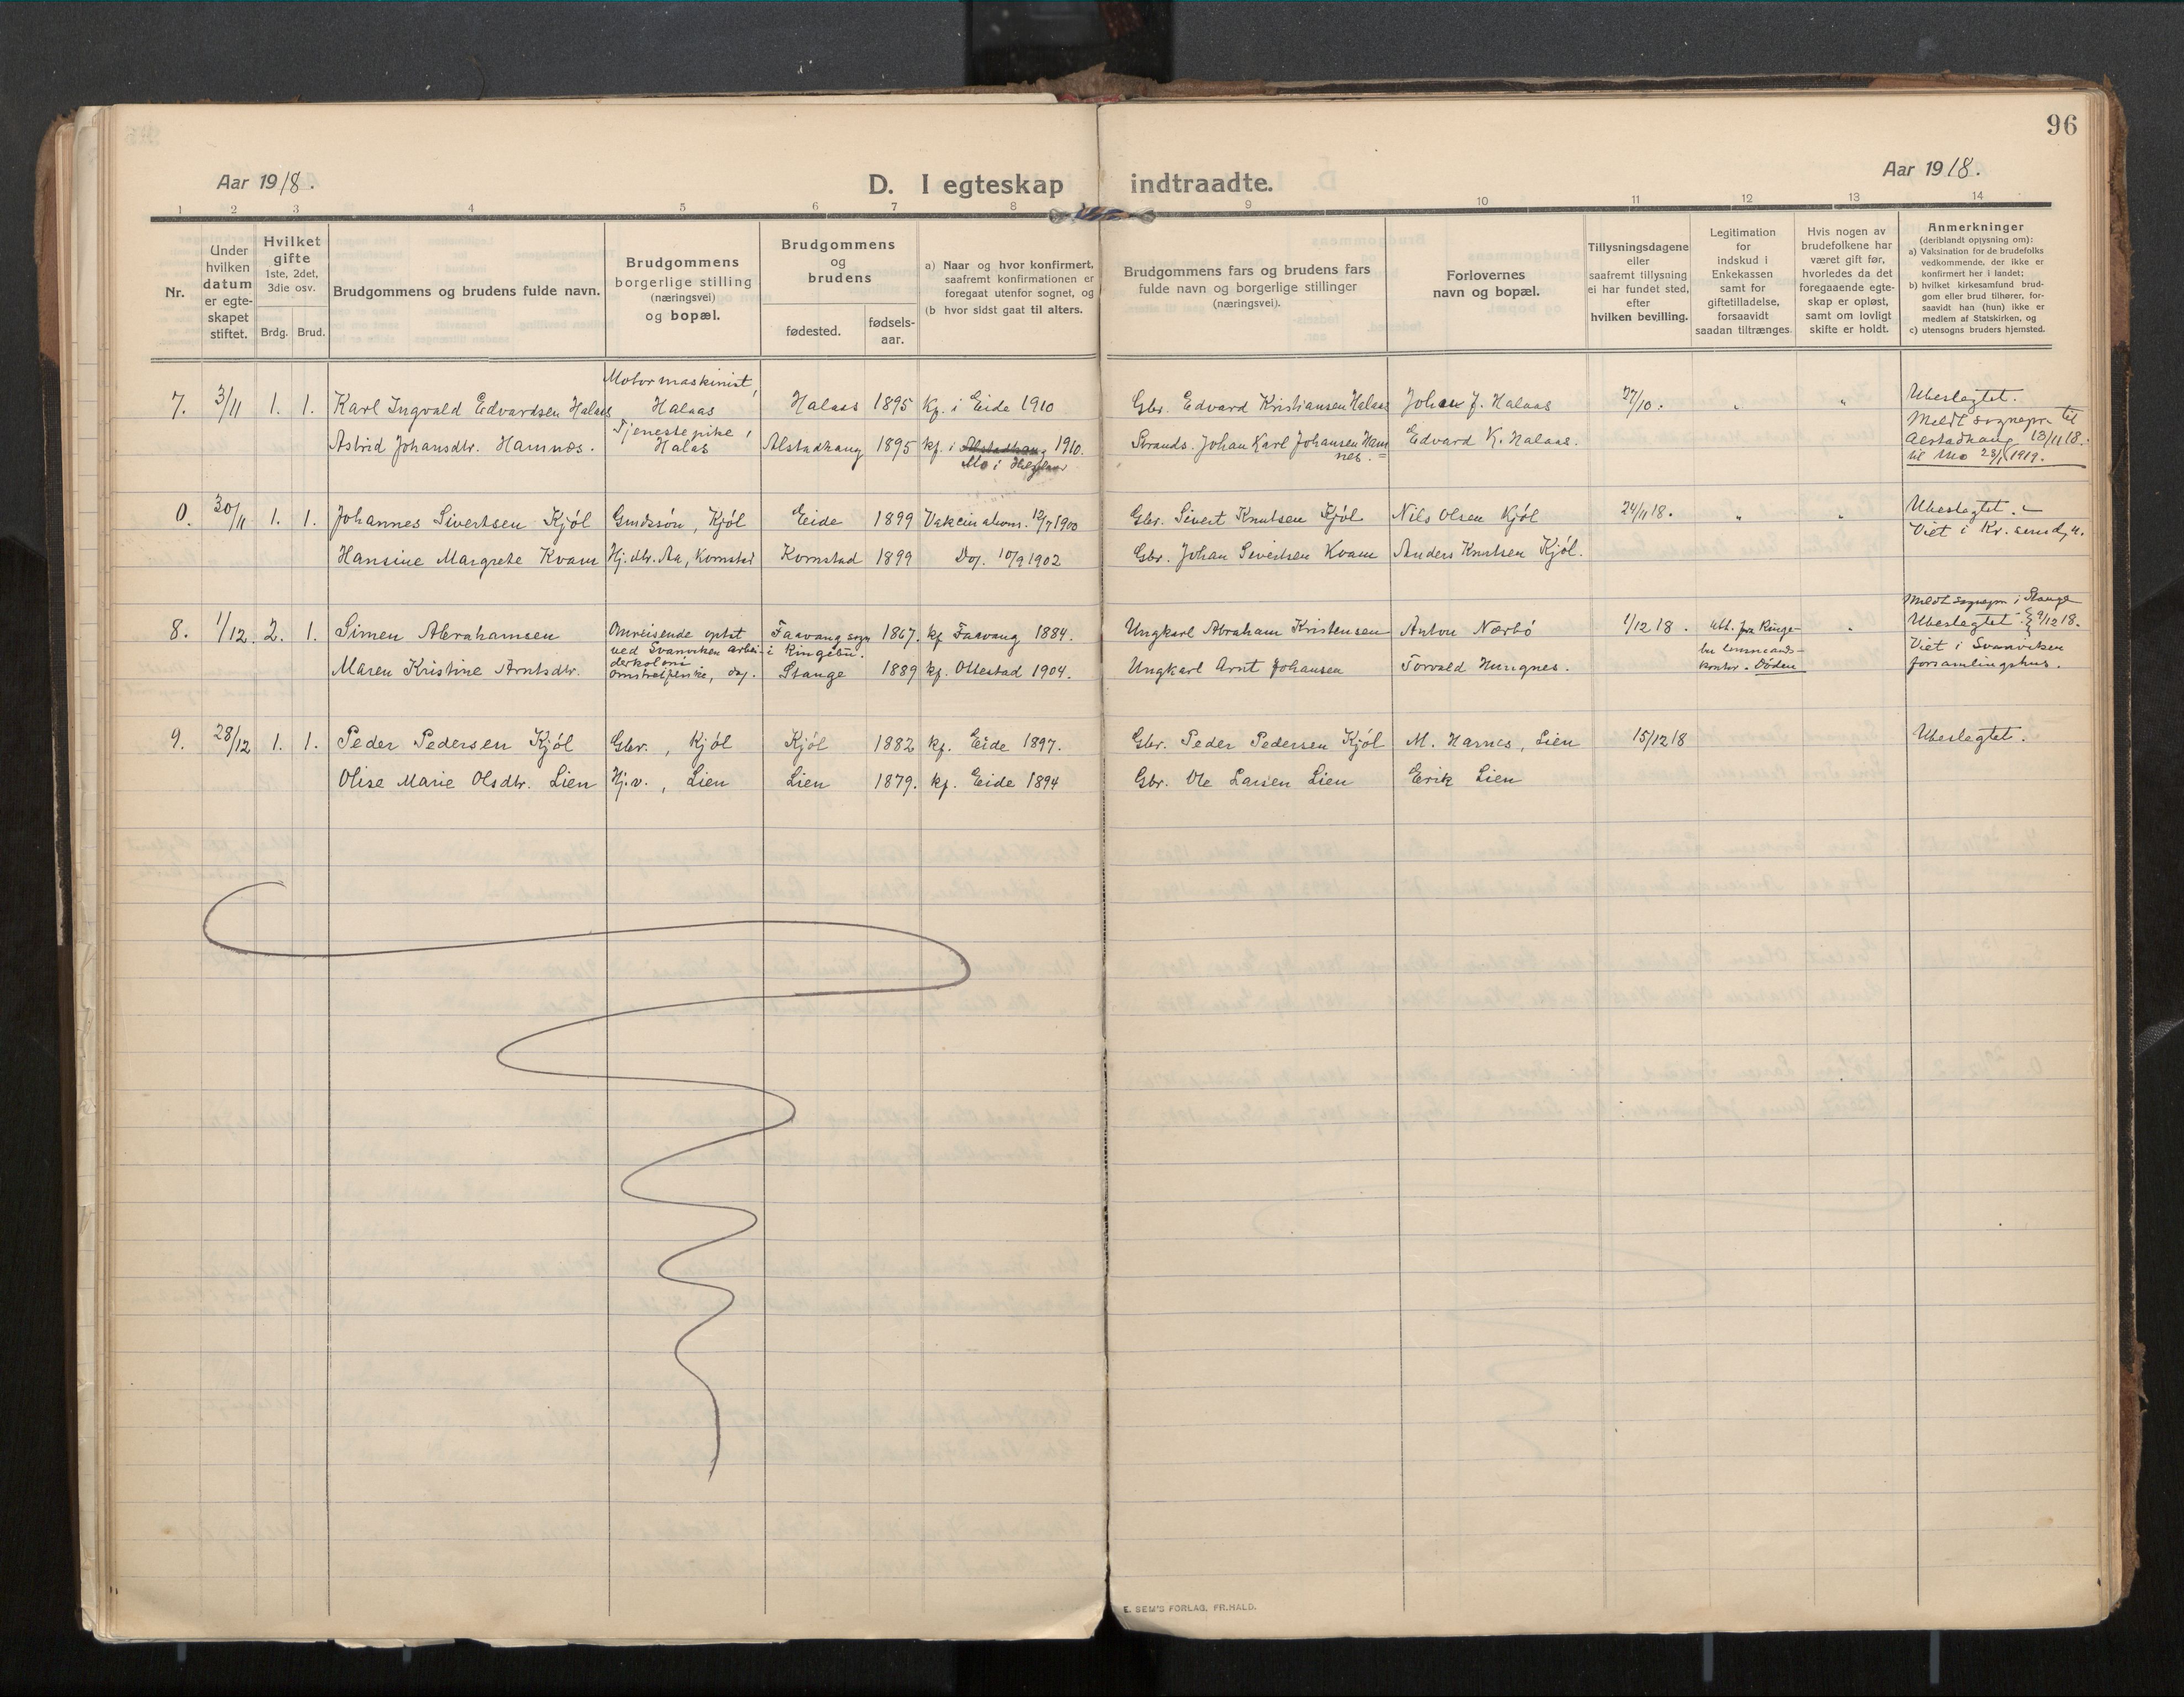 96
Aar 1918.
D. I egteskap indtraadte.
Aar 1918.
1 2 3 4 5 6 7 8 9 10 11 12 13 14
Nr.
Under
hvilken
datum
er egte-
skapet
stiftet.
Hvilket
gifte
1ste, 2det,
3die osv.
Brdg. Brud.
Brudgommens og brudens fulde navn.
Brudgommens
borgerlige stilling
(næringsvei)
og bopæl.
Brudgommens
og
brudens
fødested.
fødsels-
aar.
a) Naar og hvor konfirmert,
saafremt konfirmationen er
foregaat utenfor sognet, og
(b hvor sidst gaat til alters.
Brudgommens fars og brudens fars
fulde navn og borgerlige stillinger
(næringsvei).
Forlovernes
navn og bopæl.
Tillysningsdagene
eller
saafremt tillysning
ei har fundet sted,
efter
hvilken bevilling.
Legitimation
for
indskud i
Enkekassen
samt for
giftetilladelse,
forsaavidt
saadan tiltrænges.
Hvis nogen av
brudefolkene har
været gift før,
hvorledes da det
foregaaende egte-
skap er opløst,
samt om lovligt
skifte er holdt.
Anmerkninger
(deriblandt oplysning om):
a) Vaksination for de brudefolks
vedkommende, der ikke er
konfirmert her i landet;
b) hvilket kirkesamfund brud-
gom eller brud tilhører, for-
saavidt han (hun) ikke er
medlem af Statskirken, og
c) utensogns bruders hjemsted.
Motormaskinist,
7. 3/11 1. 1. Karl Ingvald Edvardsen Halaas Halaas Halaas 1895 Kf. i Eide 1910 Gbr. Edvard Kristiansen Halaas Johan J. Halaas 27/10. " " Ubeslegtet.
Tjenestepike,
Astrid Johansdtr. Hamnæs. Halas Alstadhaug 1895 kf. i Alstadhaug 1910. Strands. Johan Karl Johansen Ham Edvard K. Halaas.
Mo i Helgeland nes.
Meldt sognepr. til
Alstadhaug 13/11 18.
til Mo 28/1 1919.
0. 30/11 1. 1. Johannes Sivertsen Kjöl Grndssön, Kjöl Eide 1899 Vakcinations. 12/7 1900 Gbr. Sivert Knutsen Kjöl Nils Olsen Kjöl 24/11 18. " " Ubeslegtet.
Viet i Kr. sund, n.
Hansine Margrete Kvam Hj. dtr. Aa, Kornstad Kornstad 1899 Do. 10/9 1902 Gbr. Johan Sivertsen Kvam Anders Knutsen Kjöl.
Meldt sognepr i Stange
8. 1/12. 2. 1. Simen Abrahamsen Omreisende optat Faavang sogn 1867. kf Faavang 1884. Ungkarl Abraham Kristensen Anton Nærbö 1/12 18. Att. fra Ringe- " Ubeslegtet. 9/12 18.
ved Svanviken arbei- i Ringebu.
bu lensmands-
Viet i Svanviken
derkoloni
Maren Kristine Arntsdtr. omstreiferske, do. Stange 1889 kf. Ottestad 1904. Ungkarl Arnt Johansen Torvald Hungnes. kontor. Döden forsamlingshus.
9. 28/12 1. 1. Peder Pedersen Kjöl Gbr., Kjöl Kjöl 1882 kf. Eide 1897. Gbr. Peder Pedersen Kjöl M. Harnes, Lien 15/12 18 Ubeslegtet.
Olise Marie Olsdtr. Lien Hj.v., Lien Lien 1879. kf. Eide 1894 Gbr. Ole Larsen Lien Erik Lien
E. SEM'S FORLAG, FR.HALD.